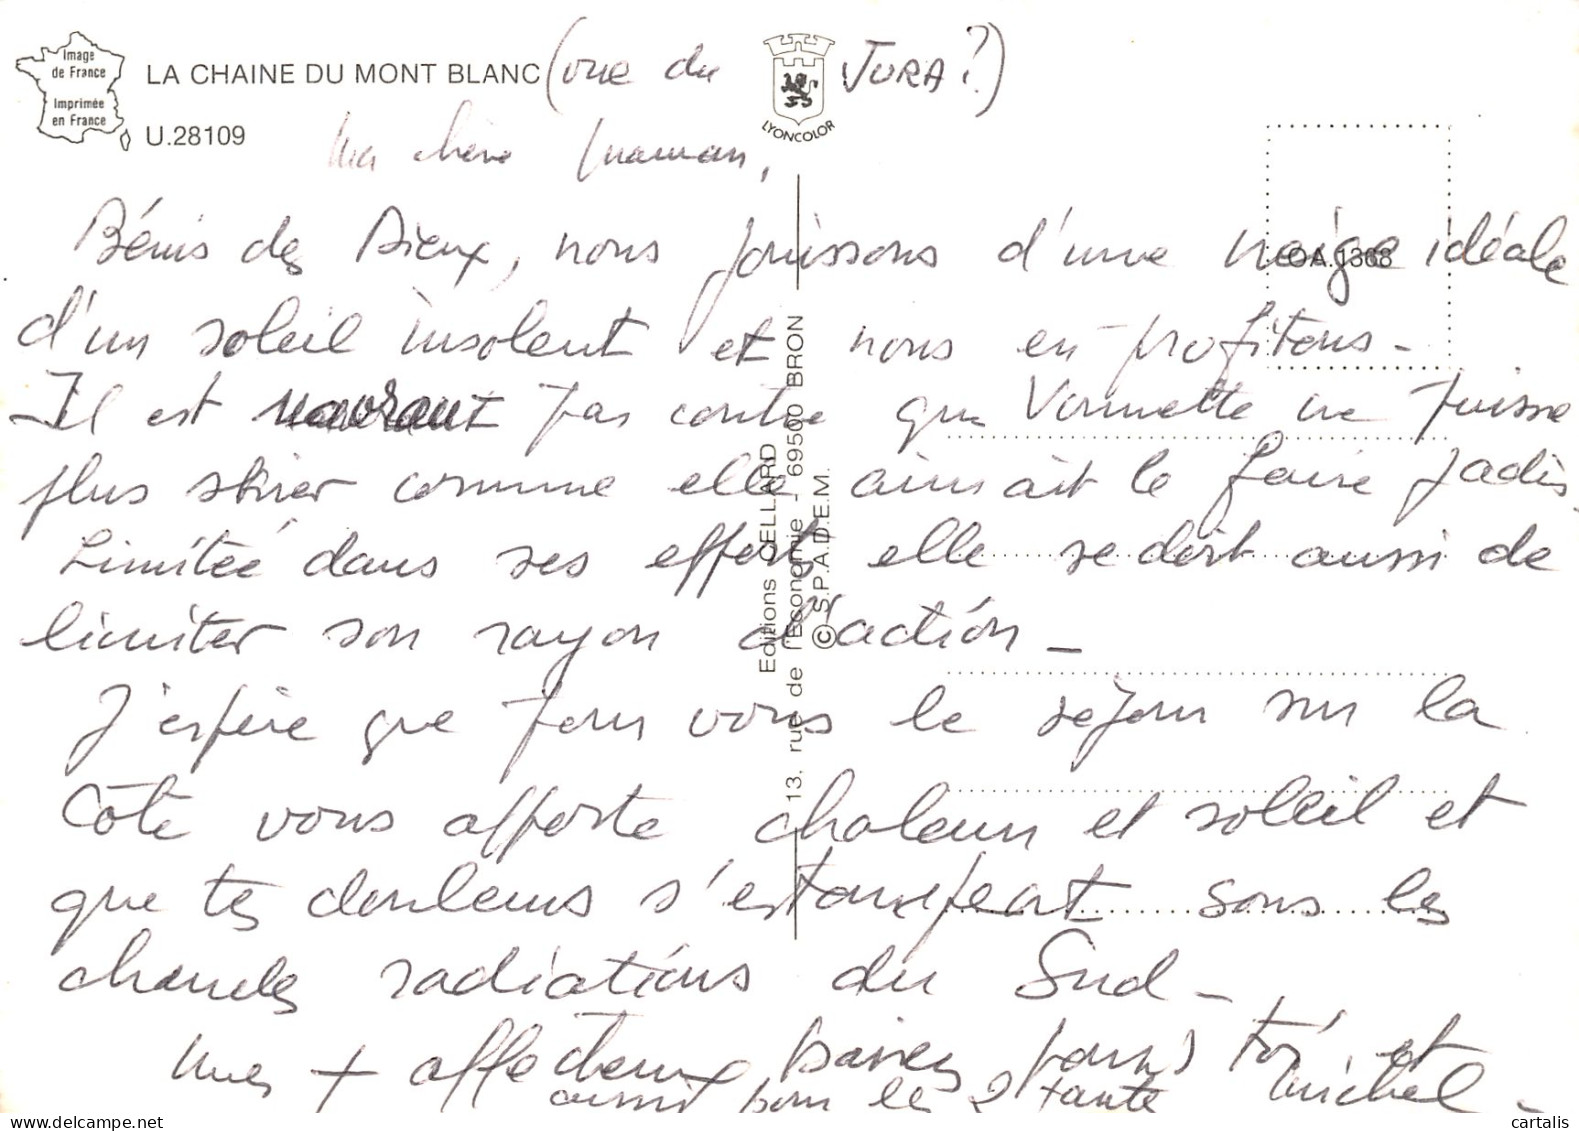 Image
de France
Imprimée
en France
LA CHAINE DU MONT BLANC (vue du JURA ?)
U.28109
LYONCOLOR
Ma chère maman,
OA.1368
Bénis des Dieux, nous jouissons d'une neige idéale
d'un soleil insolent et nous en profitons -
Il est navrant par contre que Vonnette ne puisse
plus skier comme elle aimait le faire jadis.
Limitée dans ses efforts elle se doit aussi de
limiter son rayon d'action -
J'espère que pour vous le séjour sur la
Côte vous apporte chaleur et soleil et
que tes douleurs s'estompent sous les
chaudes radiations du Sud -
Mes + affectueux baisers pour toi et
aussi pour les 2 tante Michel -
Editions CELLARD
13, rue de l'Economie / 69500 BRON
© S.P.A.D.E.M.
cartalis